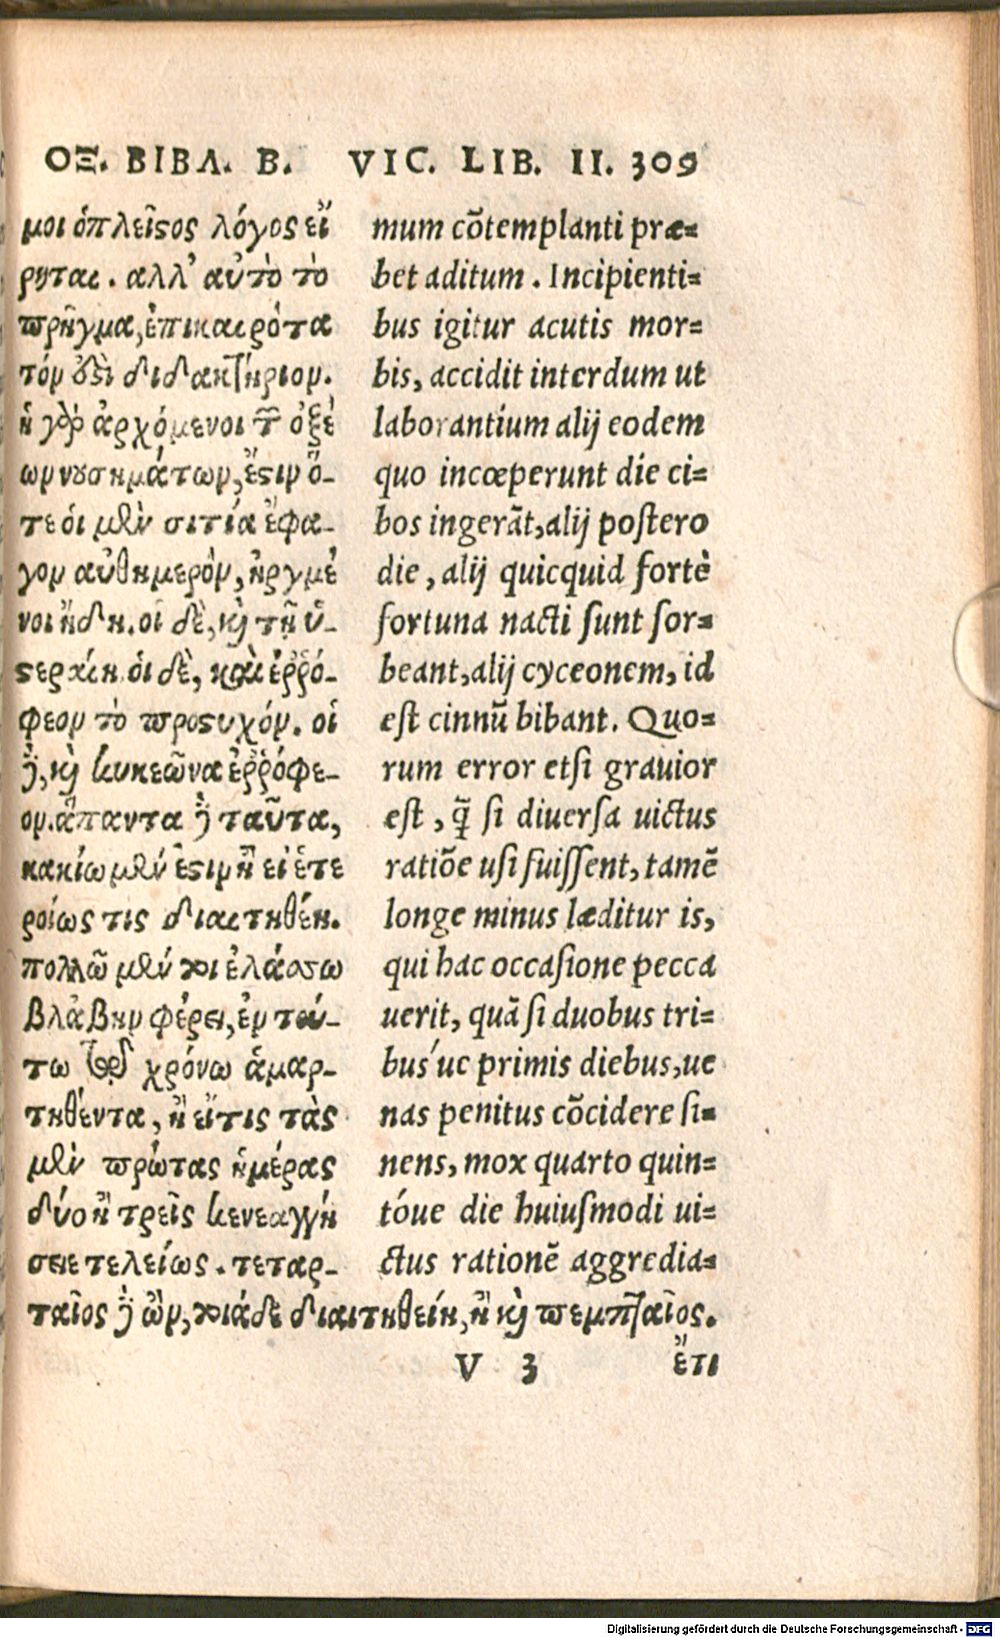 ΟΞ. ΒΙΒΛ. Β.
μοι ὁπλεῖϛος λόγος εἴ
ρηται. αλλ' αὐτὸ τὸ
πρῆγμα, ἐπικαιρότα
τόν ὅξι διδακτήριον.
ἢ γὰρ ἀρχόμενοι τ͂ ὀξέ
ων νουσημάτων, ἔϛιν ὅ-
τε ὁι μὲν σιτία ἔφα-
γον αὐθημερὸν, ἠργμέ
νοι ἤδη. οἱ δὲ, κὶ τῇ ὑ-
ϛεραίη. ὁι δὲ, καὶ ἐῤῥό-
φεον τὸ προϛυχόν. οἱ
δὲ, κὶ κυκεῶνα ἐῤῥόφε-
ον. ἅπαντα δὲ ταῦτα,
κακίω μὲν ἐϛιν ἢ εἰ ἑτε
ροίως τις διαιτηθέη.
πολλῶ μὲν τοι ἐλάσσω
βλάβην φέρει, ἐν τού-
τω τῶ χρόνω ἁμαρ-
τηθέντα, ἢ εἴτις τὰς
μὲν πρώτας ἡμέρας
δύο ἢ τρεῖς κενεαγγή
σειε τελείως. τεταρ-
ταῖος δὲ ὢν, τοιάδε διαιτηθείη, ἢ κὶ πεμπταῖος.
VIC. LIB. II. 309
mum cõtemplanti præ=
bet aditum. Incipienti=
bus igitur acutis mor=
bis, accidit interdum ut
laborantium alij eodem
quo incœperunt die ci=
bos ingerãt, alij poſtero
die, alij quicquid fortè
fortuna nacti ſunt ſor=
beant, alij cyceonem, id
eſt cinnũ bibant. Quo=
rum error etſi grauior
eſt, q̃ ſi diuerſa uictus
ratiõe uſi fuiſſent, tamẽ
longe minus læditur is,
qui hac occaſione pecca
uerit, quã ſi duobus tri=
bus'ue primis diebus, ue
nas penitus cõcidere ſi=
nens, mox quarto quin=
tóue die huiuſmodi ui=
ctus rationẽ aggredia=
V 3
ἔτι
Digitalisierung gefördert durch die Deutsche Forschungsgemeinschaft - DFG